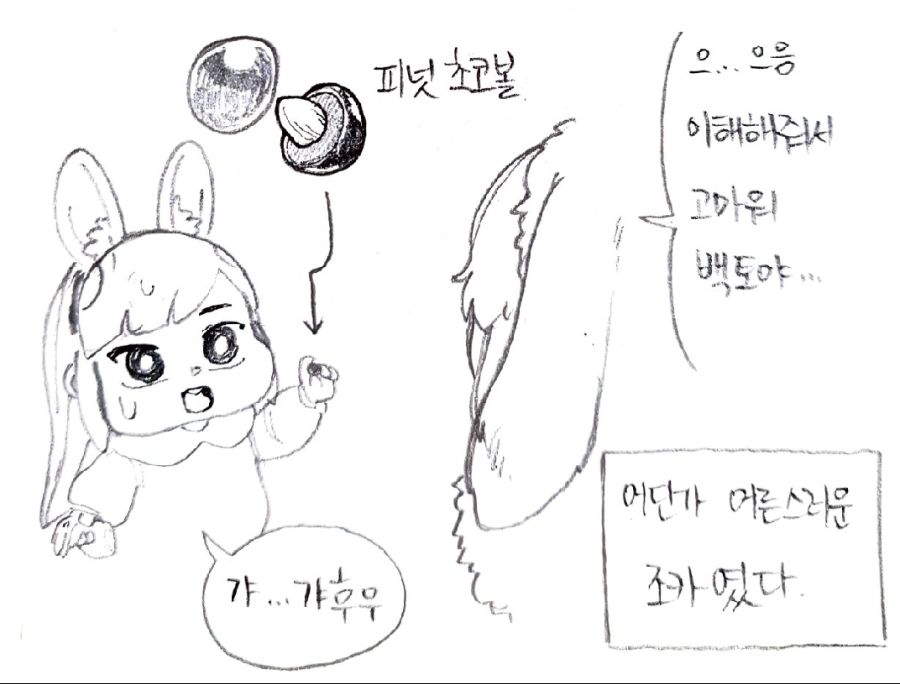 피넛 초코볼
으... 으응
이해해줘서
고마워
백토야...
갸... 갸후우
어딘가 어른스러운
조카였다.